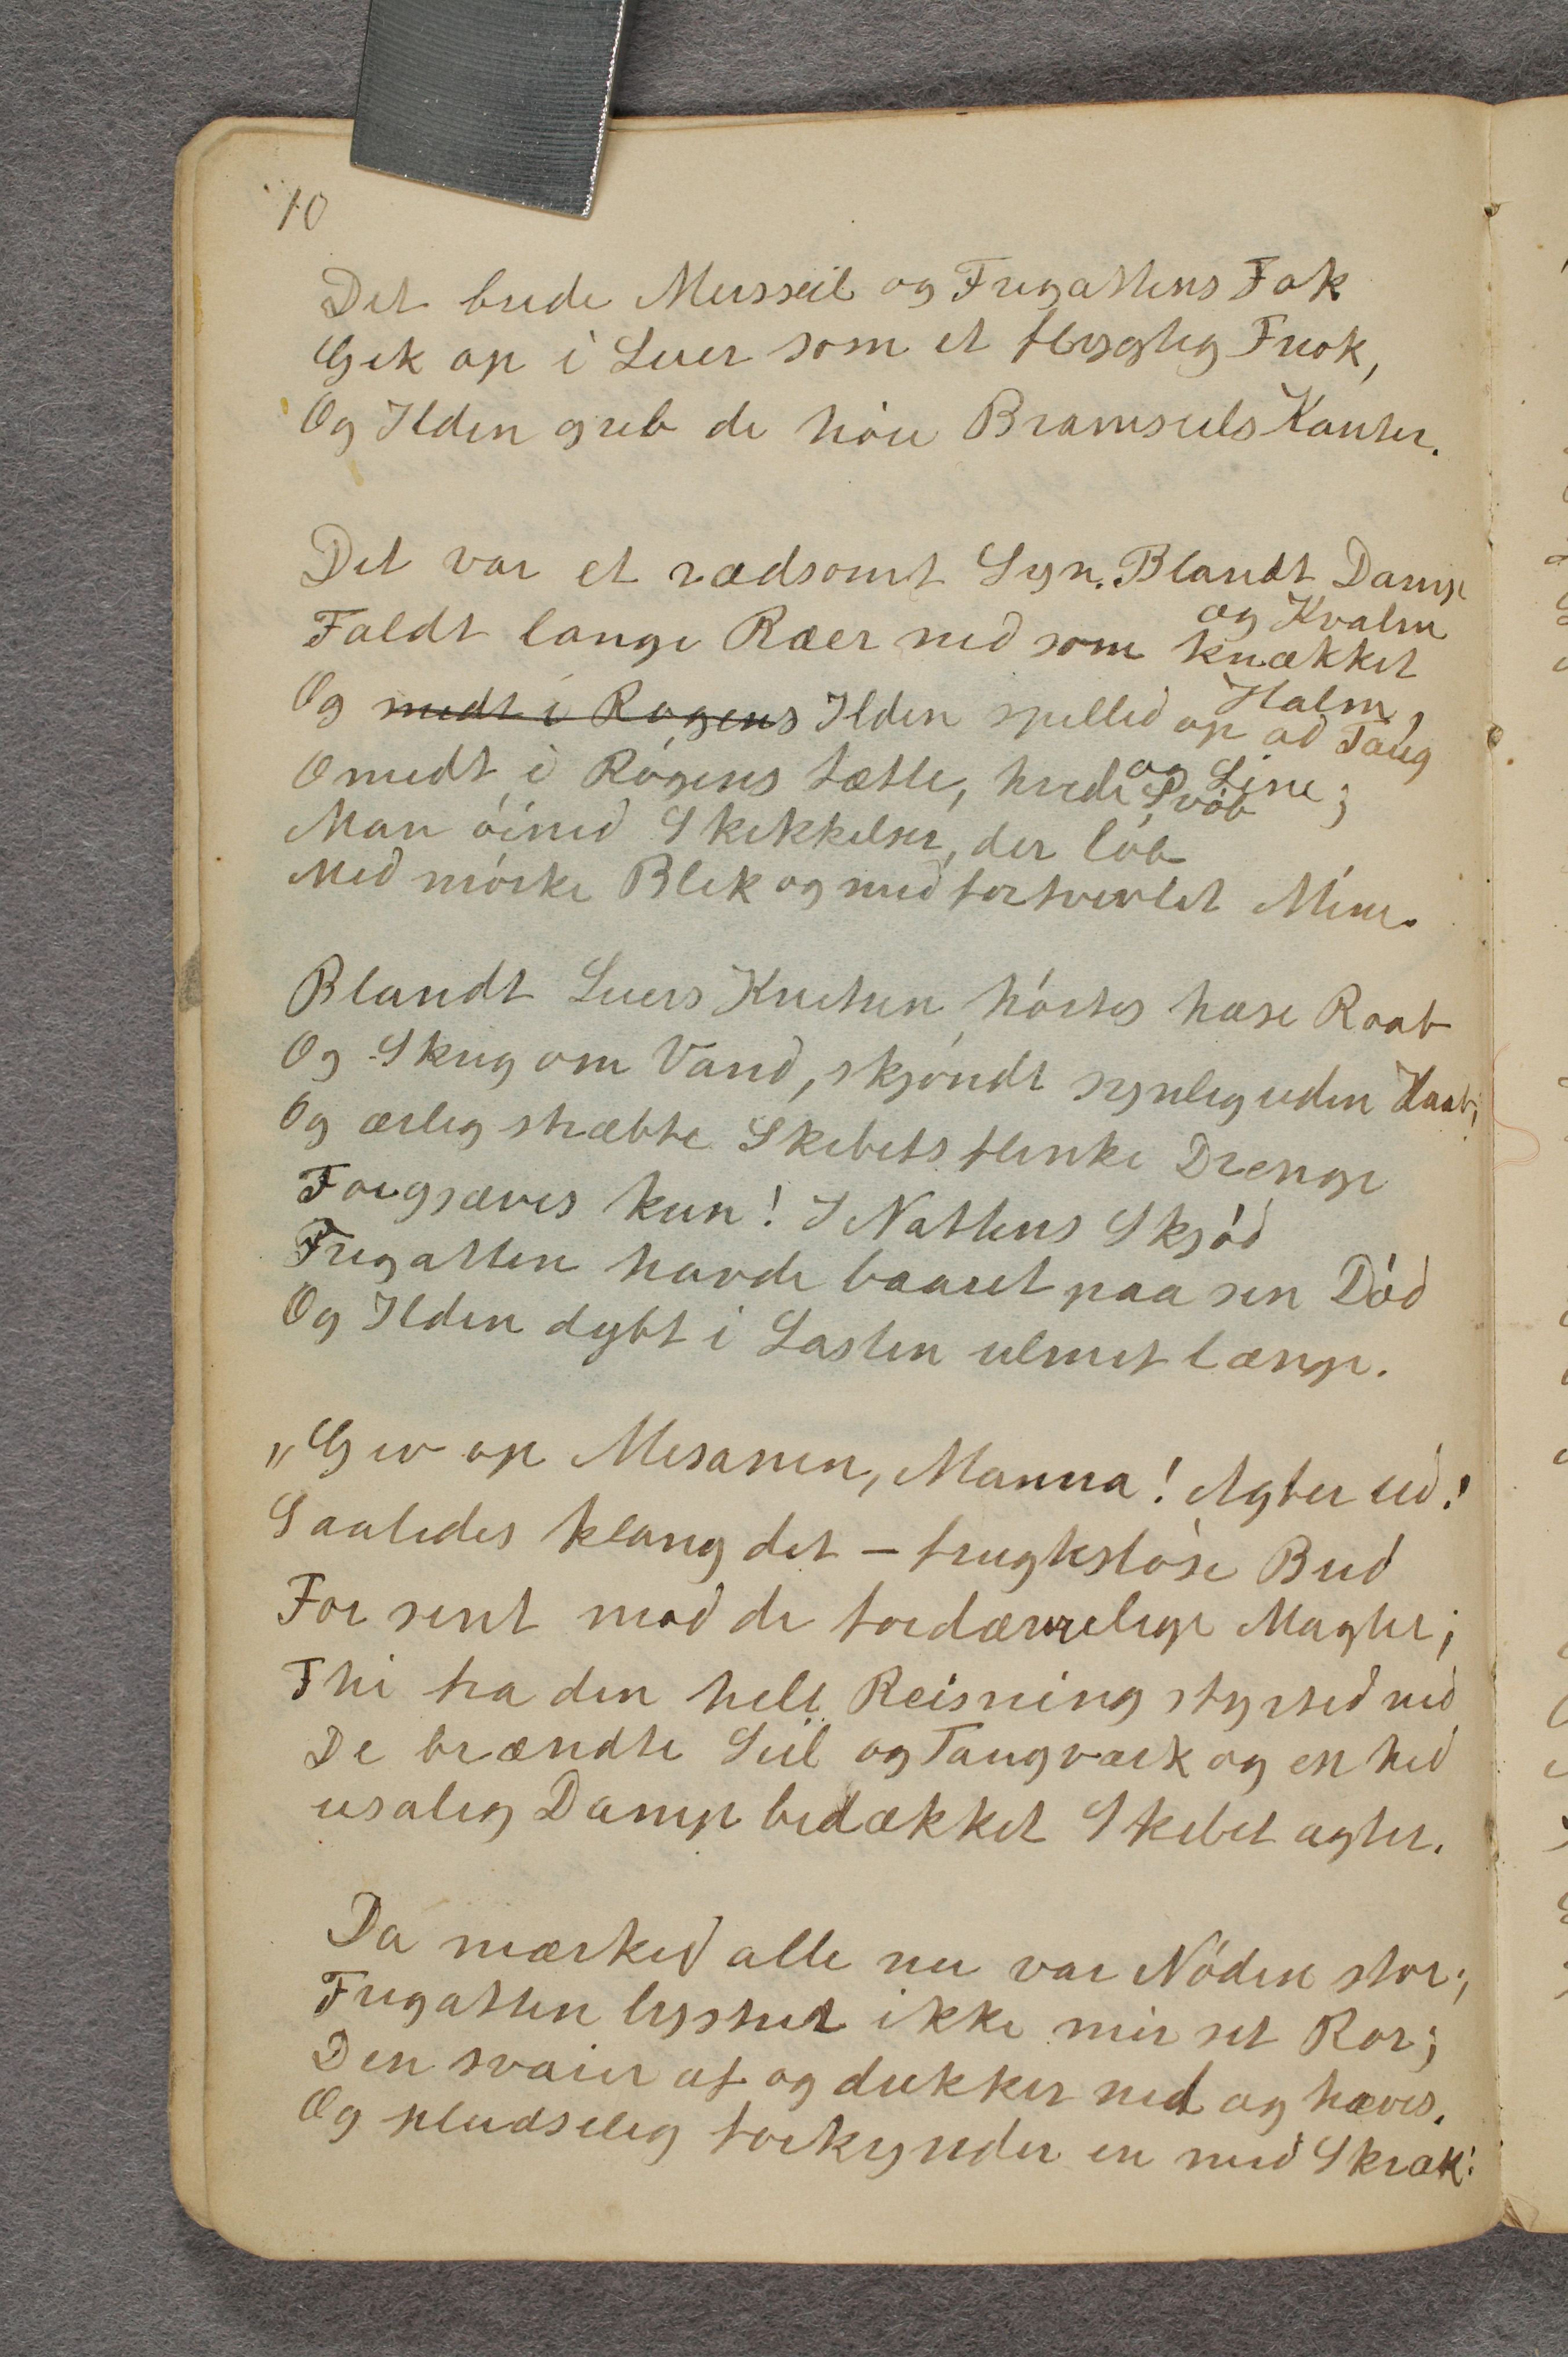 10
Det brede Mersseil og Fregattens Fok
Gik op i Luer som et flygtig Fnok,
Og Ilden greb de høie Bramseils Kanter.
Det var et rædsomt Syn. Blandt Damp
og Kvalm
Faldt lange Ræer ned som knækket
Halm,
Og midt i Røgens Ilden spilled op ad Taug
og Line;
Omidt i Røgens tætte, hvide Svøb
Man øined Skikkelser, der løb
Med mørke Blik og med fortvivlet Mine.
Blandt Luers Knitren hørtes hæse Raab
Og Skrig om Vand, skjøndt synlig uden Haab;
Og ærlig stræbte Skibets flinke Drenge
Forgjæves kun! I Nattens Skjød
Fregatten havde baaret paa sin Død
Og Ilden dybt i Lasten ulmet længe.
"Giv op Mesanen, Manna! Agter ud!
Saaledes klang det – frugtesløse Bud
For sent mod de fordærvelige Magter;
Thi fra den hele Reisning styrted ned
De brændte Seil og Taugværk og en hed
usalig Damp bedækket Skibet agter.
Da mærked alle nu var Nøden stor;
Fregatten lystret ikke mer sit Ror;
Den svaier af og dukker ned og hæves.
Og pludselig forkynder en med Skræk: